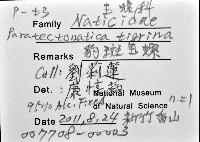 P-t3 玉螺科
Family Naticidae
Paratectonatica tigrina
豹斑玉螺
Remarks
Coll: 劉莉蓮
Det.:
National Museum
95% Alc. Fixed of Natural Science n=1
Date 2011.8.24 新竹香山
007708-00003